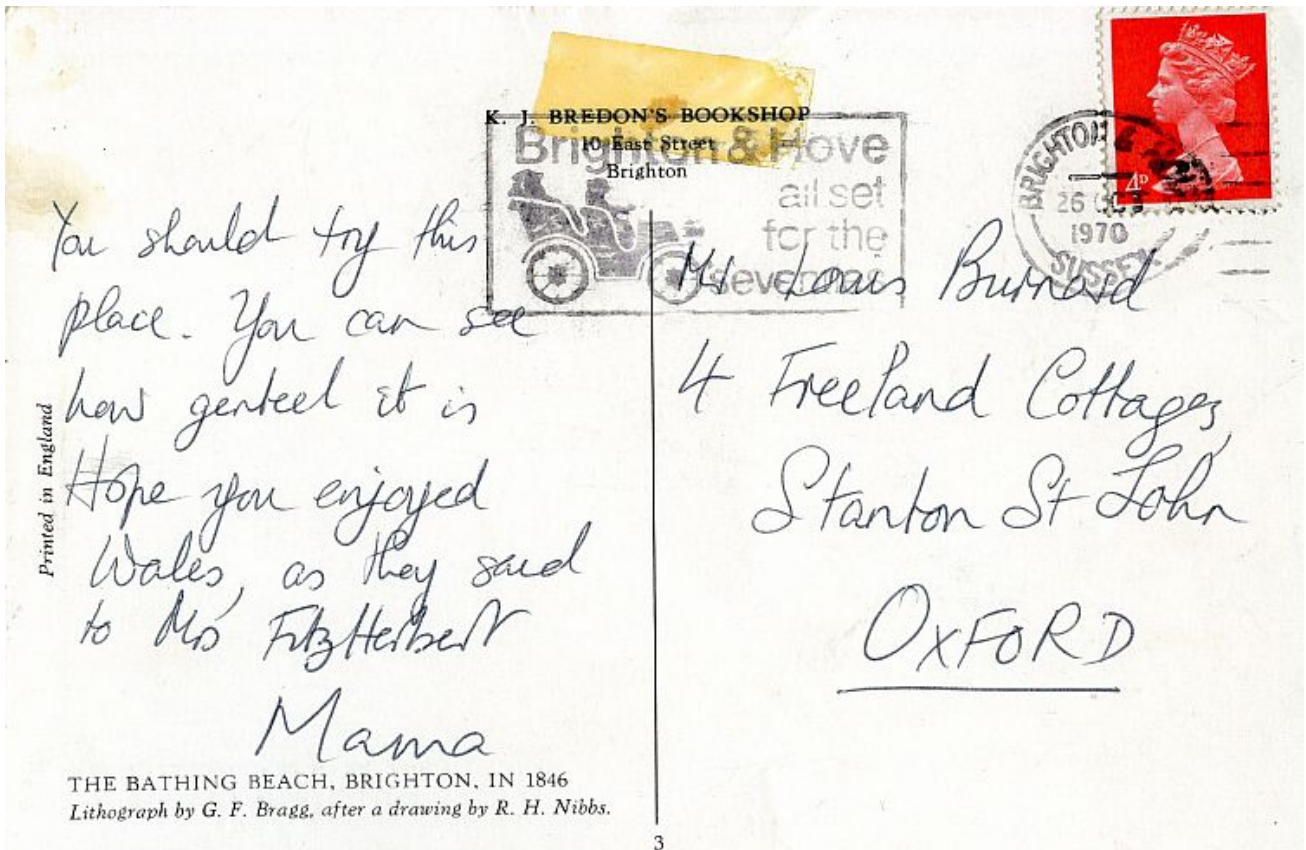 K. J. BREDON'S BOOKSHOP
10 East Street
Brighton
Brighton & Hove
all set
for the
seventies
BRIGHTON &
26
1970
SUSSEX
4D
You should try this
place. You can see
how genteel it is
Hope you enjoyed
Wales, as they said
to Mrs FitzHerbert
Mama
Mr Louis Burnard
4 Freeland Cottages,
Stanton St John
OXFORD
Printed in England
THE BATHING BEACH, BRIGHTON, IN 1846
Lithograph by G. F. Bragg, after a drawing by R. H. Nibbs.
3